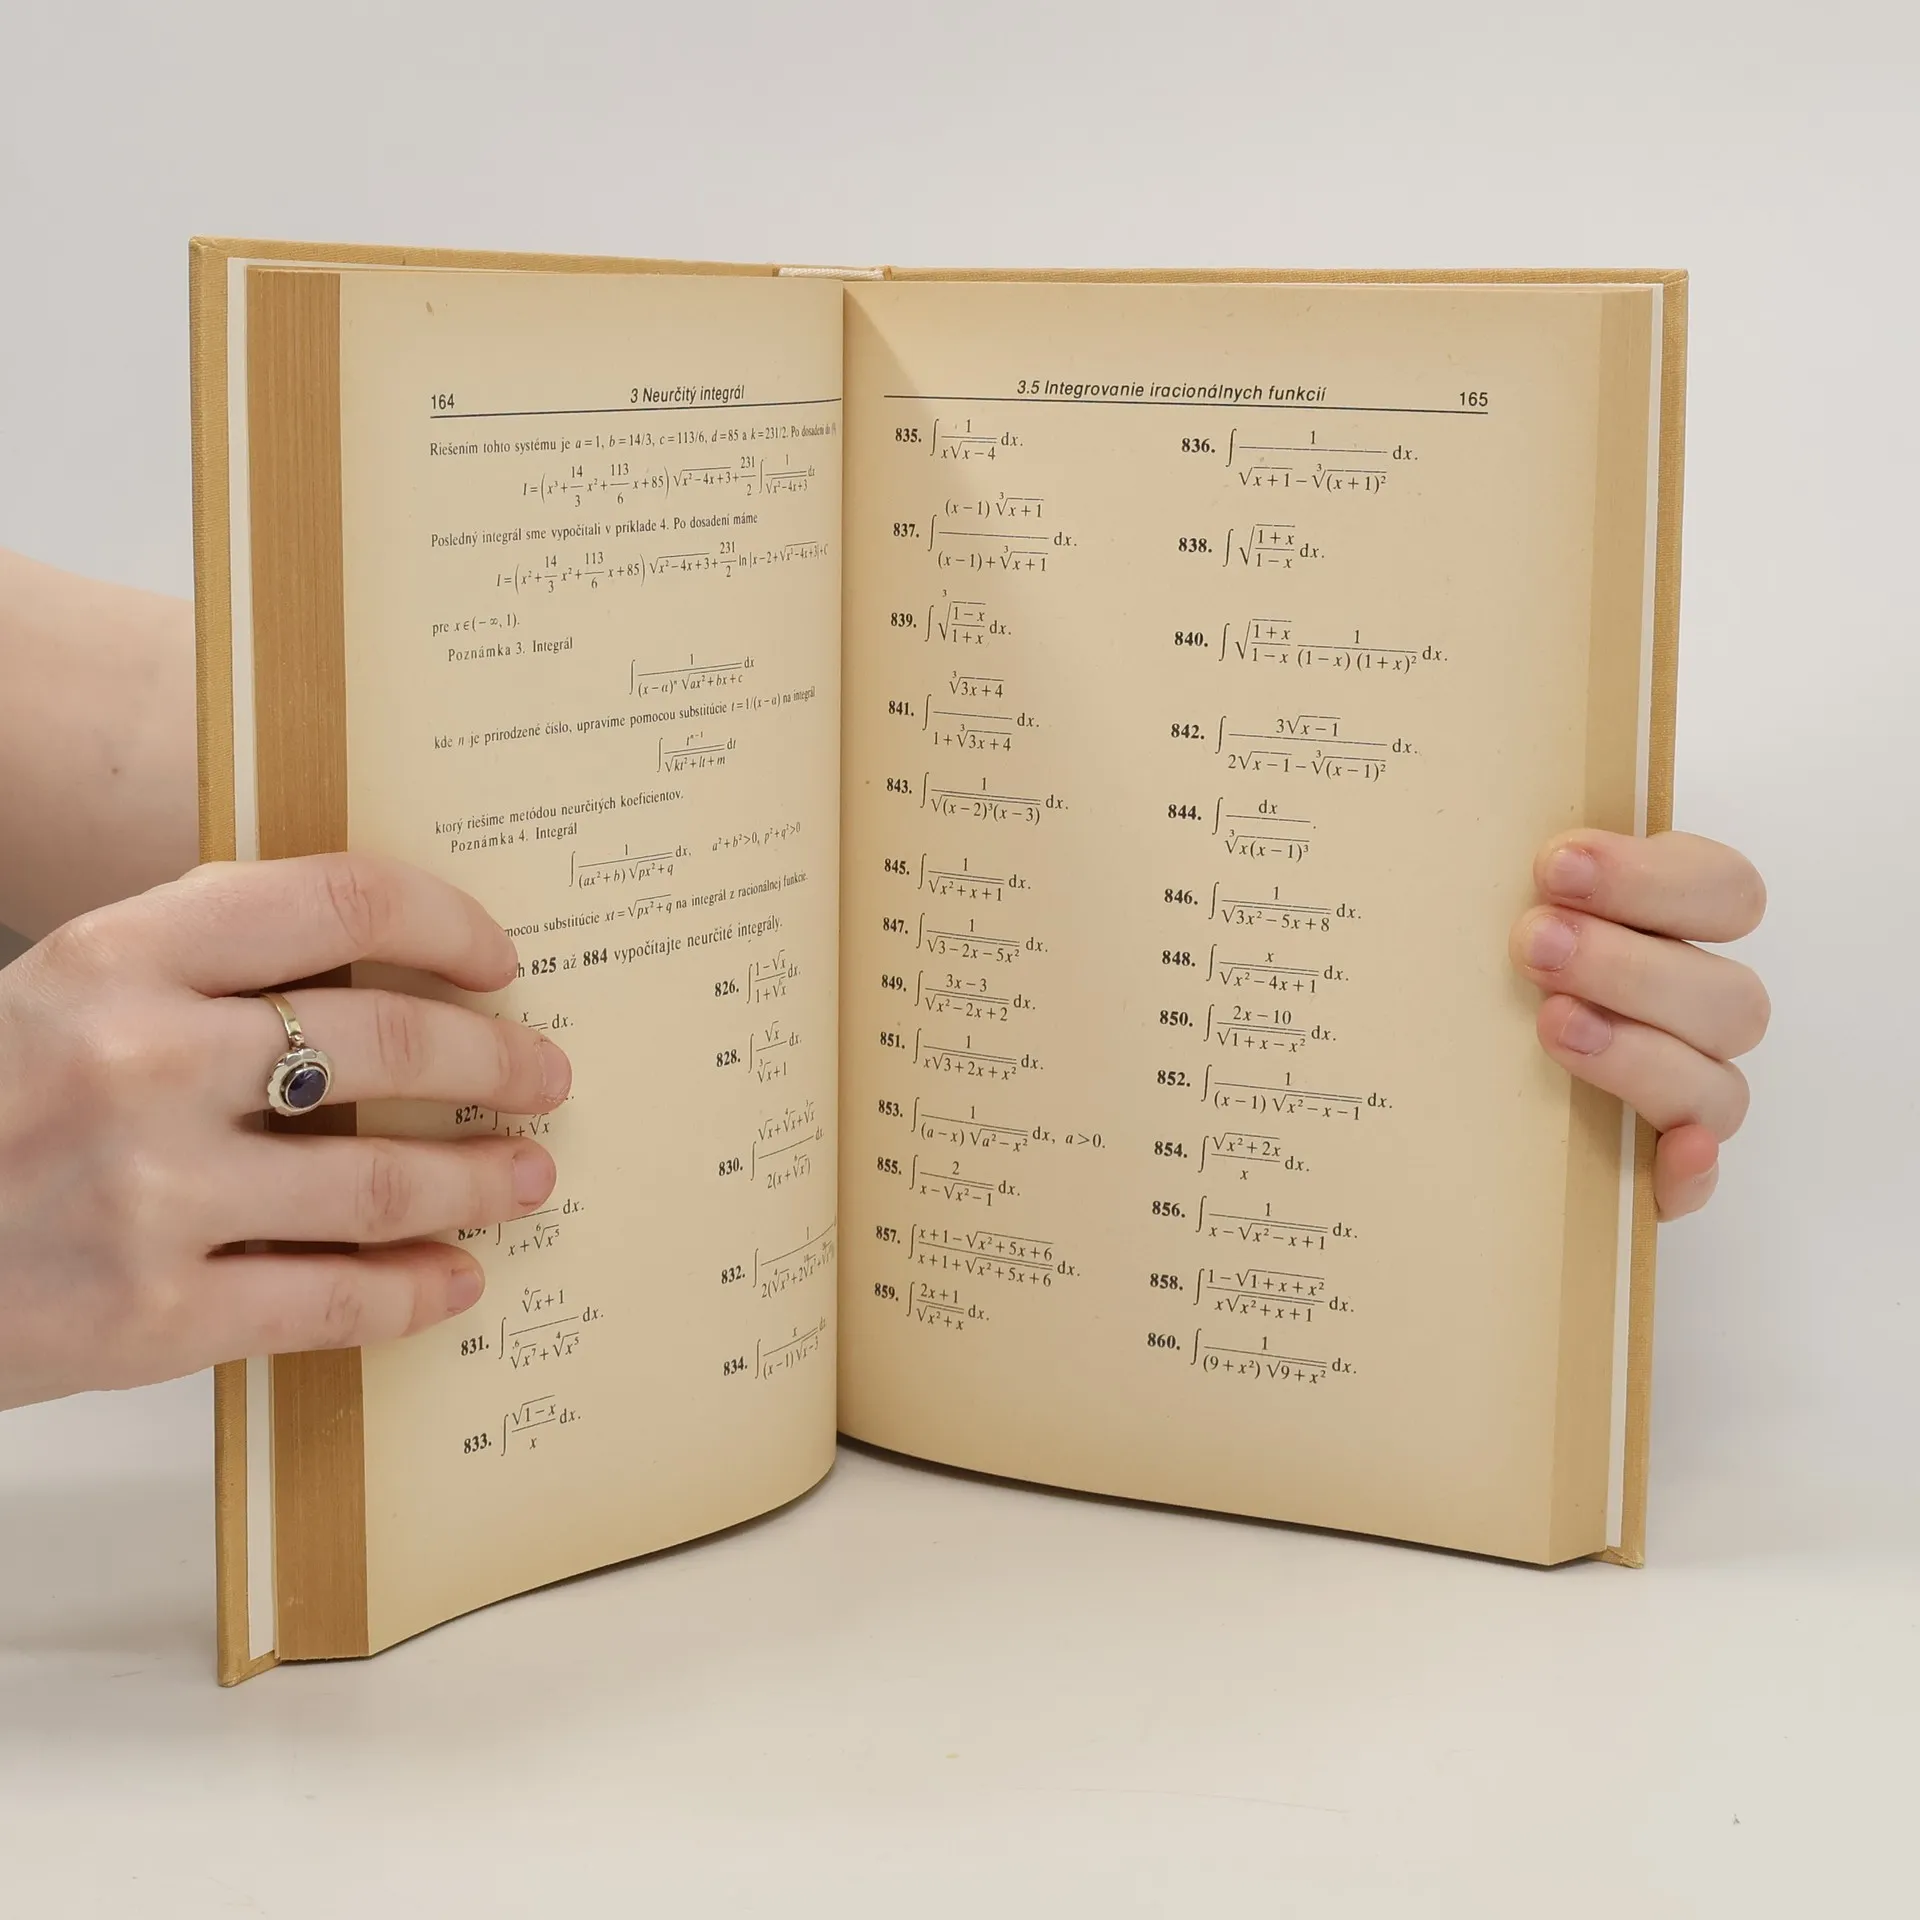 164 3 Neurčitý integrál
Riešením tohto systému je a = 1, b = 14/3, c = 113/6, d = 85 a k = 231/2. Po dosadení do
I = (x³ + 14/3 x² + 113/6 x + 85) √(x² − 4x + 3) + 231/2 ∫ 1/√(x² − 4x + 3) dx
Posledný integrál sme vypočítali v príklade 4. Po dosadení máme
I = (x² + 14/3 x² + 113/6 x + 85) √(x² − 4x + 3) + 231/2 ln |x − 2 + √(x² − 4x + 3)| + C
pre x ∈ (− ∞, 1).
Poznámka 3. Integrál
∫ 1/((x − α)ⁿ √(ax² + bx + c)) dx
kde n je prirodzené číslo, upravíme pomocou substitúcie t = 1/(x − α) na integrál
∫ tⁿ⁻¹/√(kt² + lt + m) dt
ktorý riešime metódou neurčitých koeficientov.
Poznámka 4. Integrál
∫ 1/((ax² + b) √(px² + q)) dx, a² + b² > 0, p² + q² > 0
mocou substitúcie xt = √(px² + q) na integrál z racionálnej funkcie.
h 825 až 884 vypočítajte neurčité integrály.
x dx. 826. ∫ (1 − √x)/(1 + √x) dx.
828. ∫ √x/(∛x + 1) dx.
827. ∫ 1 + √x
830. ∫ (√x + ∜x + ∛x)/2(x + ) dx.
829. ∫ x + ⁶√x⁵ dx.
832. ∫ 1
831. ∫ (⁶√x + 1)/(⁶√x⁷ + ⁴√x⁵) dx.
834. ∫ x/((x − 1) √(x − 3)) dx.
833. ∫ √(1 − x)/x dx.
3.5 Integrovanie iracionálnych funkcií 165
835. ∫ 1/(x√(x − 4)) dx. 836. ∫ 1/(√(x + 1) − ∛((x + 1)²)) dx.
837. ∫ ((x − 1) ∛(x + 1))/((x − 1) + ∛(x + 1)) dx. 838. ∫ √((1 + x)/(1 − x)) dx.
839. ∫ ∛((1 − x)/(1 + x)) dx. 840. ∫ √((1 + x)/(1 − x)) 1/((1 − x) (1 + x)²) dx.
841. ∫ ∛(3x + 4)/(1 + ∛(3x + 4)) dx. 842. ∫ 3√(x − 1)/(2√(x − 1) − ∛((x − 1)²)) dx.
843. ∫ 1/√((x − 2)³(x − 3)) dx. 844. ∫ dx/∛(x(x − 1)³).
845. ∫ 1/√(x² + x + 1) dx. 846. ∫ 1/√(3x² − 5x + 8) dx.
847. ∫ 1/√(3 − 2x − 5x²) dx. 848. ∫ x/√(x² − 4x + 1) dx.
849. ∫ (3x − 3)/√(x² − 2x + 2) dx. 850. ∫ (2x − 10)/√(1 + x − x²) dx.
851. ∫ 1/(x√(3 + 2x + x²)) dx. 852. ∫ 1/((x − 1) √(x² − x − 1)) dx.
853. ∫ 1/((a − x) √(a² − x²)) dx, a > 0. 854. ∫ √(x² + 2x)/x dx.
855. ∫ 2/(x − √(x² − 1)) dx. 856. ∫ 1/(x − √(x² − x + 1)) dx.
857. ∫ (x + 1 − √(x² + 5x + 6))/(x + 1 + √(x² + 5x + 6)) dx. 858. ∫ (1 − √(1 + x + x²))/(x√(x² + x + 1)) dx.
859. ∫ (2x + 1)/√(x² + x) dx. 860. ∫ 1/((9 + x²) √(9 + x²)) dx.